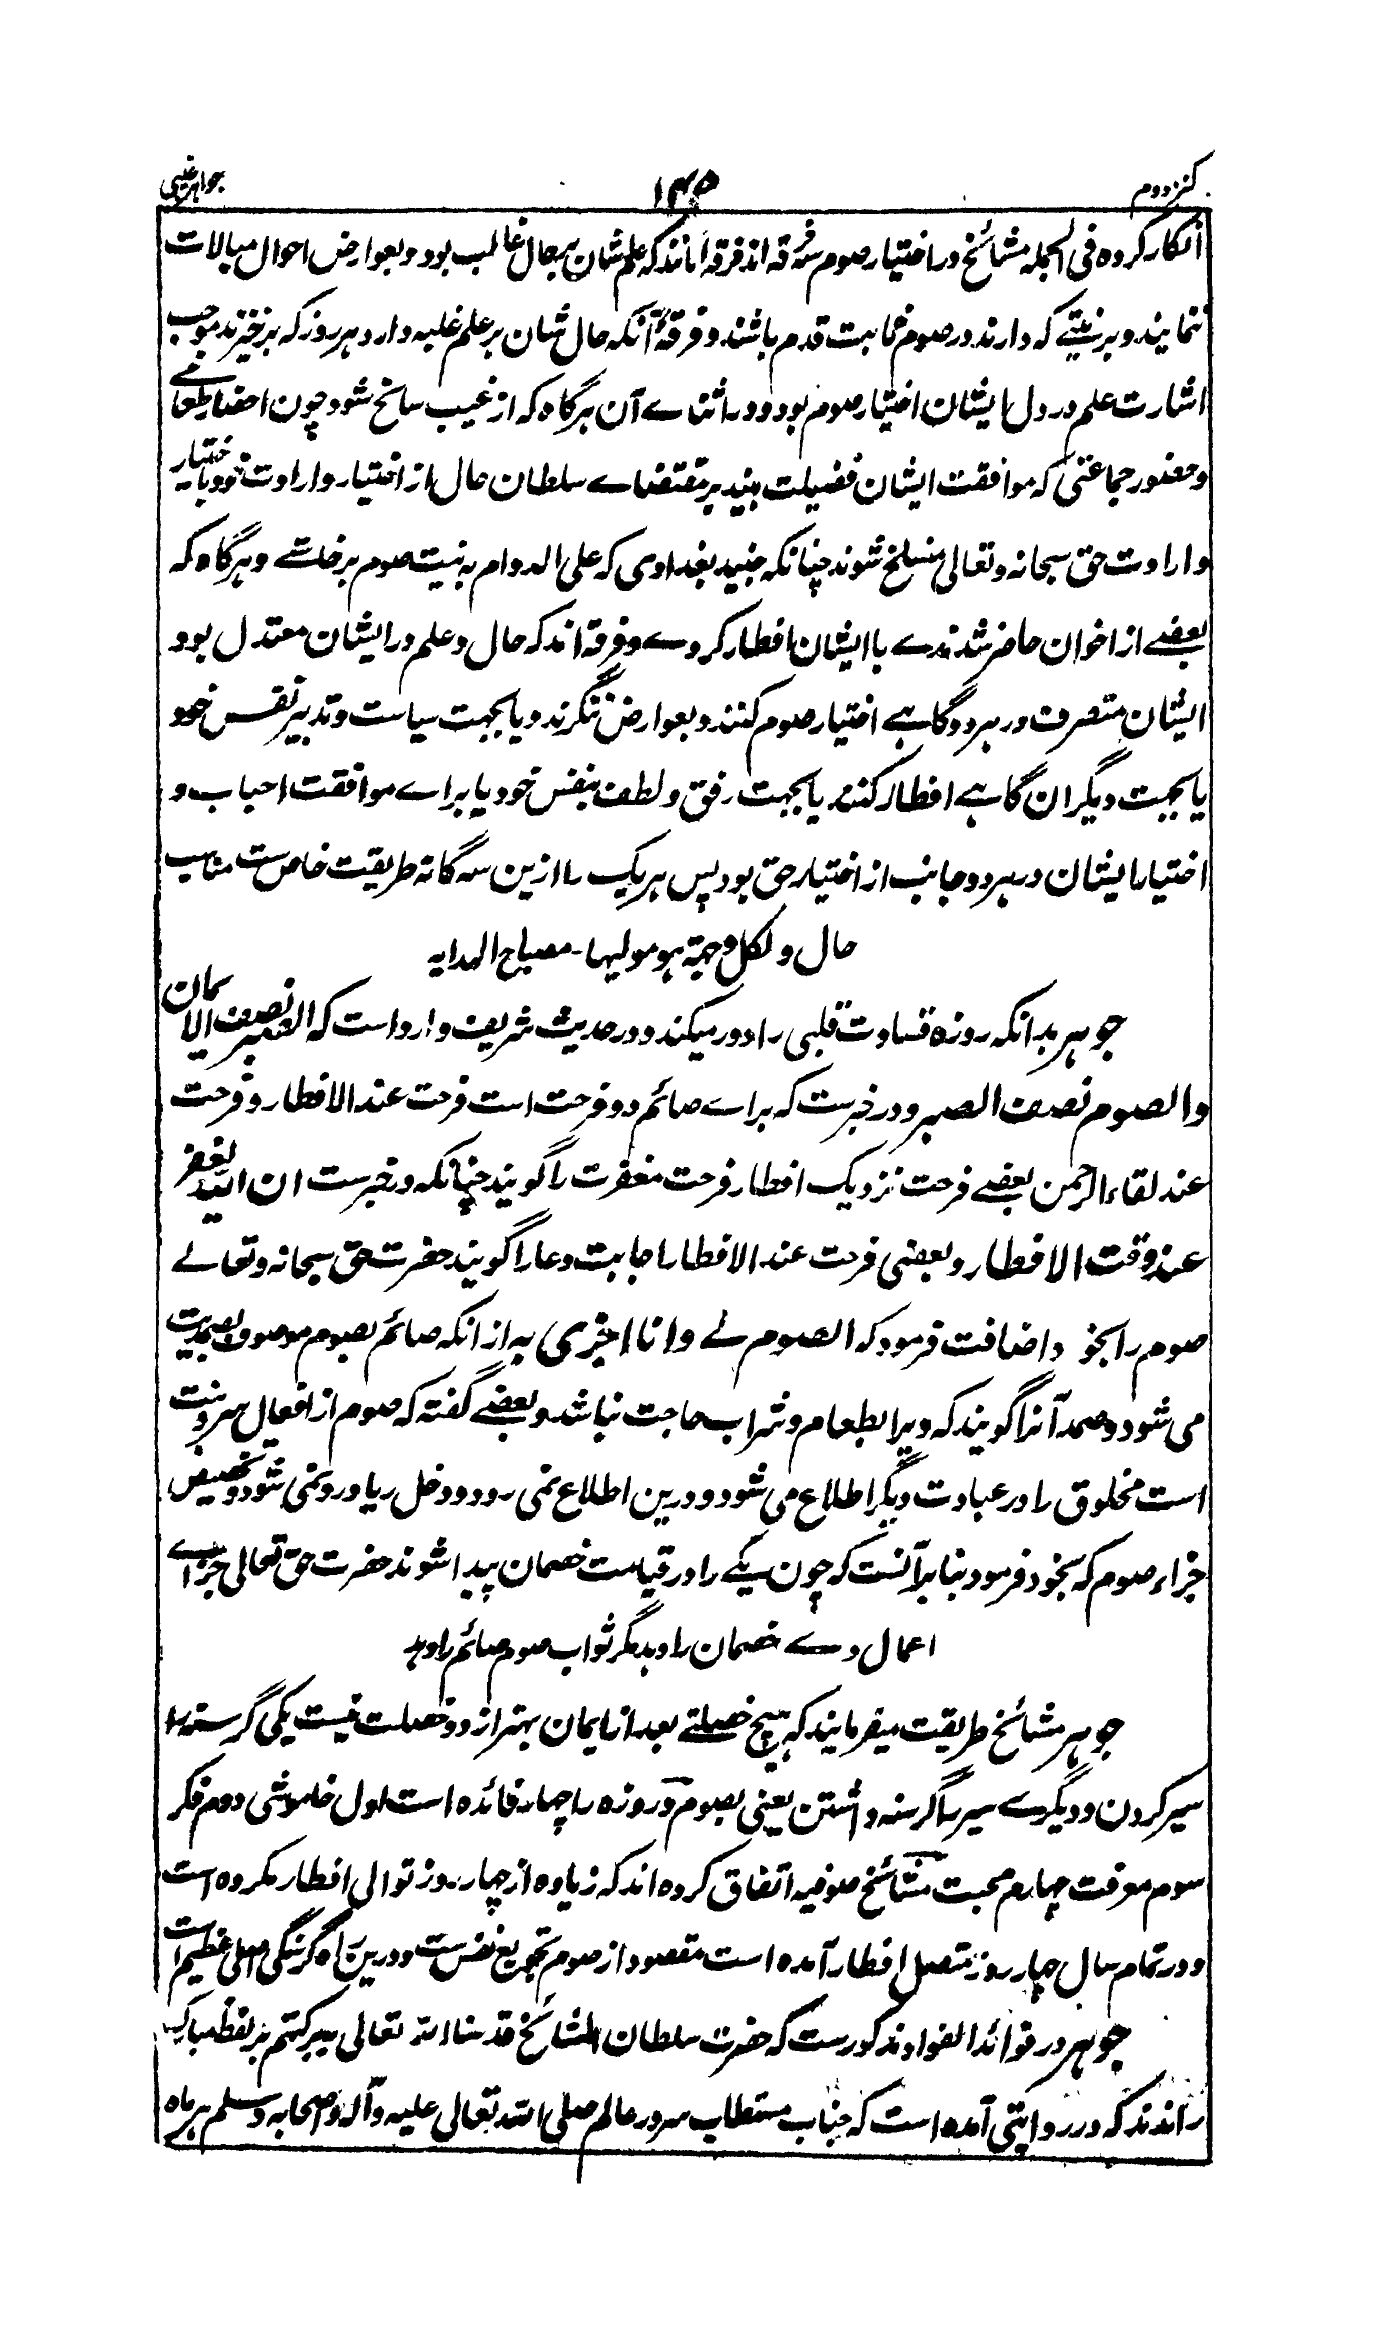 کنز دوم
۱۴۵
جواهر غیبی
انکار کرده فی الجمله مشائخ در اختیار صوم سه فرقه اند فرقهٔ آنانند که علم شان بر حال غالب بود و بعوارض احوال مبالات
ننمایند و بر نیتے که دارند در صوم ثابت قدم باشند و فرقهٔ آنکه حال شان بر علم غلبه دارد هر روز که برخیزند موجب
اشارت علم در دل ایشان اختیار صوم بود و در اثناے آن هرگاه که از غیب سانح شود چون احضار طعامے
و حضور جماعتی که موافقت ایشان فضیلت بیند بر مقتضاے سلطان حال از اختیار و ارادت خود باختیار
و ارادت حق سبحانه و تعالی منسلخ شوند چنانکه جنید بغدادی که علی الدوام به نیت صوم برخاستے و هرگاه که
بعضے از اخوان حاضر شدندے با ایشان افطار کردے و فرقهٔ اند که حال و علم در ایشان معتدل بود
ایشان متصرف در هر دو گاہے اختیار صوم کنند و بعوارض ننگرند و یا بجهت سیاست و تدبیر نفس خود
یا بجهت دیگران گاہے افطار کنند یا بجهت رفق و لطف بنفس خود یا براے موافقت احباب و
اختیار ایشان در هر دو جانب از اختیار حق بود پس هر یک را ازین سه گانه طریقت خاص ست مناسب
حال و لکل وجهة هو مولیها - مصباح الهدایه
جوهر بدانکه روزه قساوت قلبی را دور میکند و در حدیث شریف وارد است که الصبر نصف الایمان
والصوم نصف الصبر و در خبرست که براے صائم دو فرحت است فرحت عند الافطار و فرحت
عند لقاء الرحمن بعضے فرحت نزدیک افطار فرحت مغفرت را گویند چنانکه در خبرست ان الله یغفر
عند وقت الافطار و بعضی فرحت عند الافطار اجابت دعا را گویند حضرت حق سبحانه و تعالے
صوم را بخود اضافت فرمود که الصوم لے و انا اجزی به از انکه صائم بصوم موصوف بصمدیت
می شود و صمد آنرا گویند که ویرا بطعام و شراب حاجت نباشد و بعضے گفته که صوم از افعال سرونیت
است مخلوق را در عبادت دیگر اطلاع می شود و درین اطلاع نمی رود و دخل ریا درو نمی شود و تخصیص
جزاء صوم که بخود فرمود بنا بر آنست که چون یکے را در قیامت خصمان پیدا شوند حضرت حق تعالی جزاے
اعمال وے خصمان را دهد مگر ثواب صوم صائم را دهد
جوهر مشائخ طریقت میفرمایند که هیچ خصلتے بعد از ایمان بهتر از دو خصلت نیست یکی گرسنه را
سیر کردن و دیگرے سیر را گرسنه داشتن یعنی بصوم و روزه را چهار فائده است اول خاموشی دوم فکر
سوم معرفت چهارم محبت مشائخ صوفیه اتفاق کرده اند که زیاده از چهار روز توالی افطار مکروه است
و در تمام سال چهار روز متصل افطار آمده است مقصود از صوم تجویع نفس ست و درین راه گرسنگی اصلی عظیم است
جوهر در فوائد الفواد مذکورست که حضرت سلطان المشائخ قدسنا الله تعالی ببرکتهم بر لفظ مبارک
راندند که در روایتی آمده است که جناب مستطاب سرور عالم صلی الله تعالی علیه و آله و اصحابه وسلم هر ماه